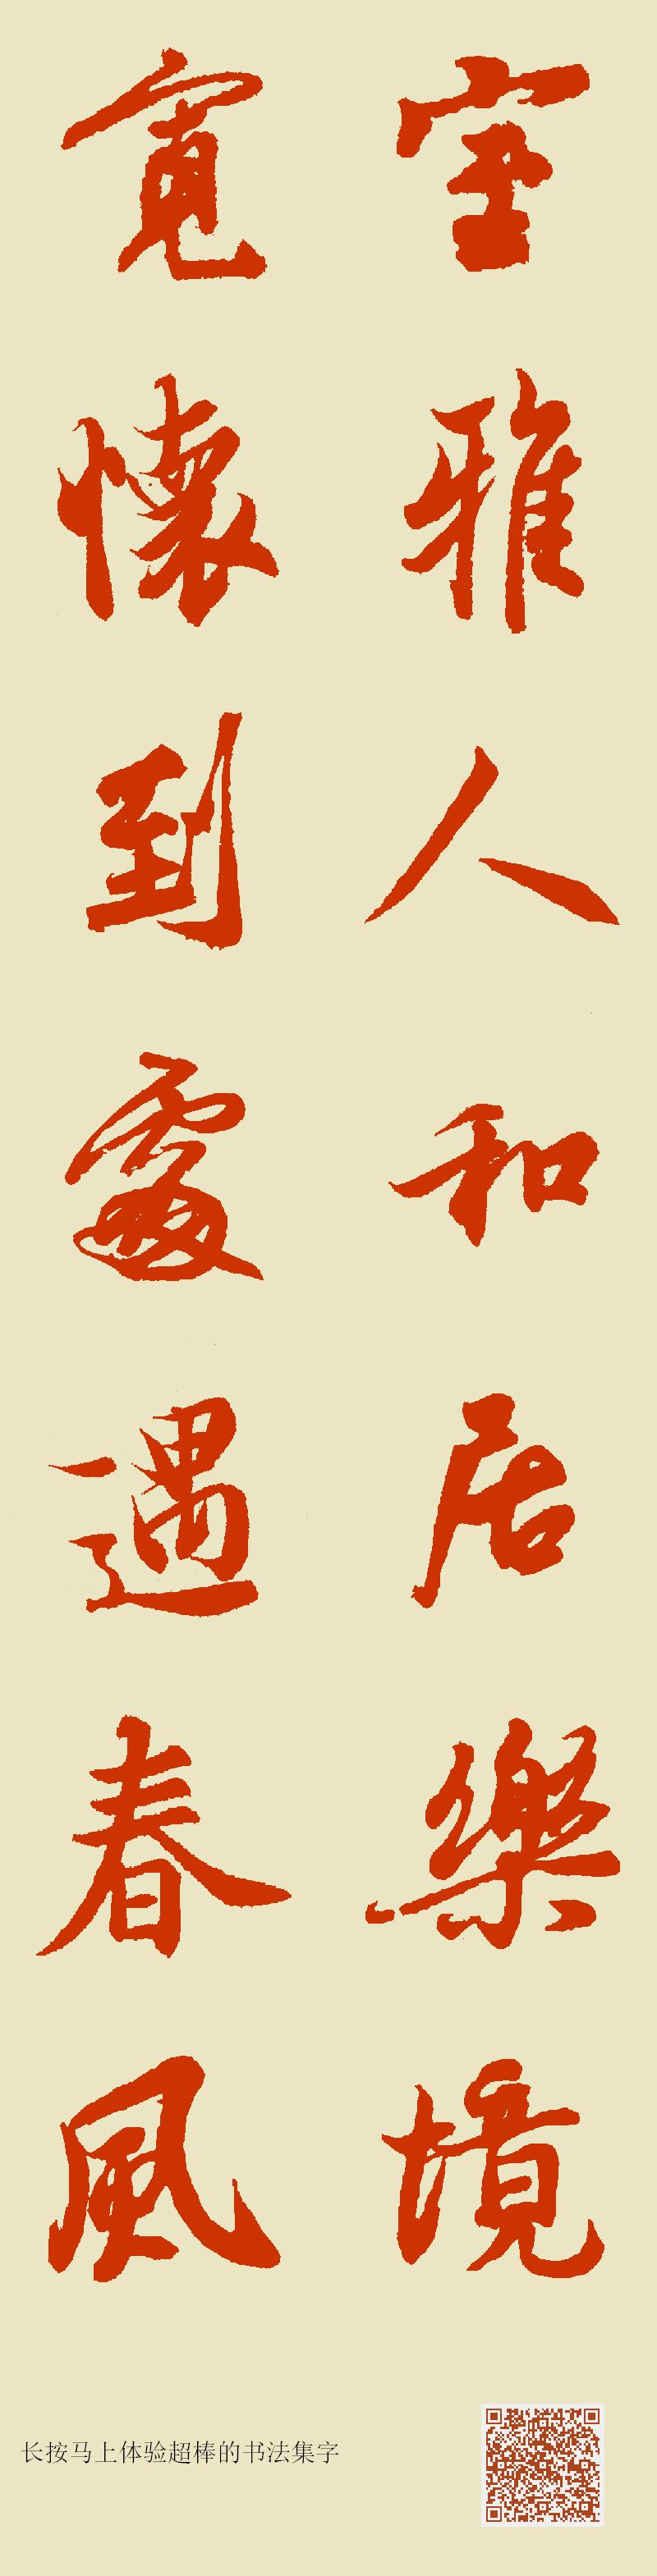 室雅人和居樂境
寬懷到處遇春風
长按马上体验超棒的书法集字